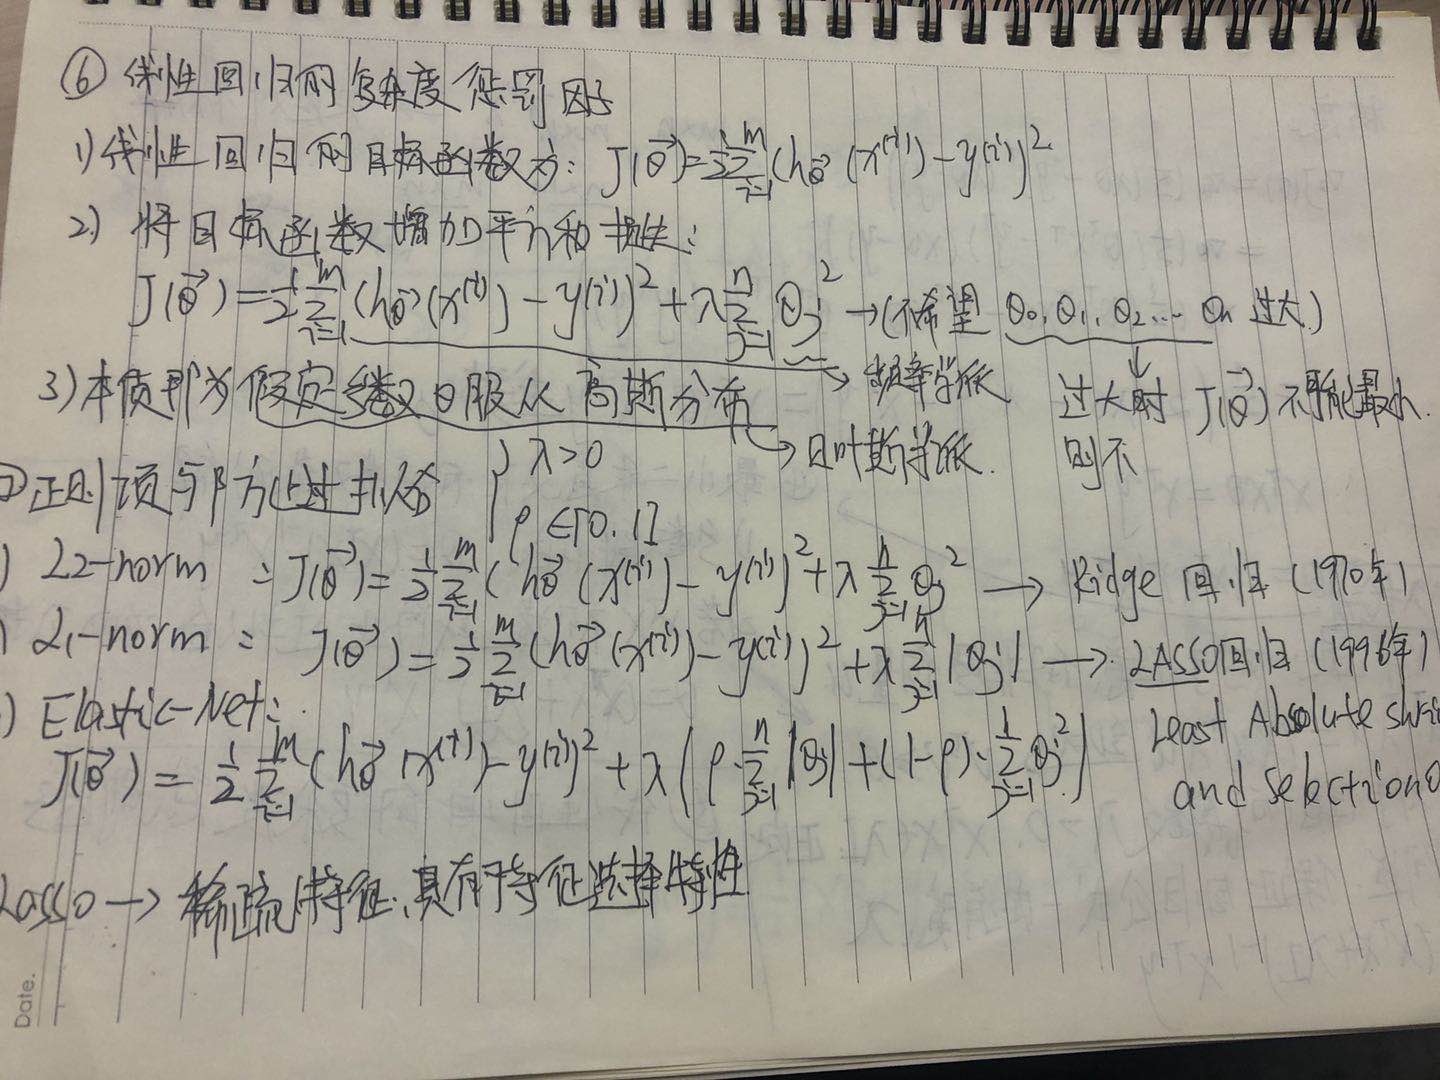 ⑥ 线性回归的复杂度惩罚因子
1) 线性回归的目标函数为: J(θ⃗)=½∑ᵢ₌₁ᵐ(hθ⃗(x⁽ⁱ⁾)-y⁽ⁱ⁾)²
2) 将目标函数增加平方和损失:
J(θ⃗)=½∑ᵢ₌₁ᵐ(hθ⃗(x⁽ⁱ⁾)-y⁽ⁱ⁾)²+λ∑ⱼ₌₁ⁿθⱼ² →(不希望 θ₀,θ₁,θ₂… θn 过大)
→ 频率学派
↓ 过大时 J(θ⃗)不可能最小
3) 本质即为假定参数θ服从高斯分布 → 贝叶斯学派.
则不
正则项与防止过拟合 { λ>0
ρ∈[0,1]
) L2-norm : J(θ⃗)=½∑ᵢ₌₁ᵐ(hθ⃗(x⁽ⁱ⁾)-y⁽ⁱ⁾)²+λ∑ⱼ₌₁ⁿθⱼ² → Ridge 回归 (1970年)
) L1-norm : J(θ⃗)=½∑ᵢ₌₁ᵐ(hθ⃗(x⁽ⁱ⁾)-y⁽ⁱ⁾)²+λ∑ⱼ₌₁ⁿ|θⱼ| → LASSO回归 (1996年)
Least Absolute shri
and selectionO
) Elastic-Net:
J(θ⃗)=½∑ᵢ₌₁ᵐ(hθ⃗(x⁽ⁱ⁾)-y⁽ⁱ⁾)²+λ(ρ·∑ⱼ₌₁ⁿ|θⱼ|+(1-ρ)·∑ⱼ₌₁ⁿθⱼ²)
Lasso → 稀疏特征,具有特征选择特性
Date.